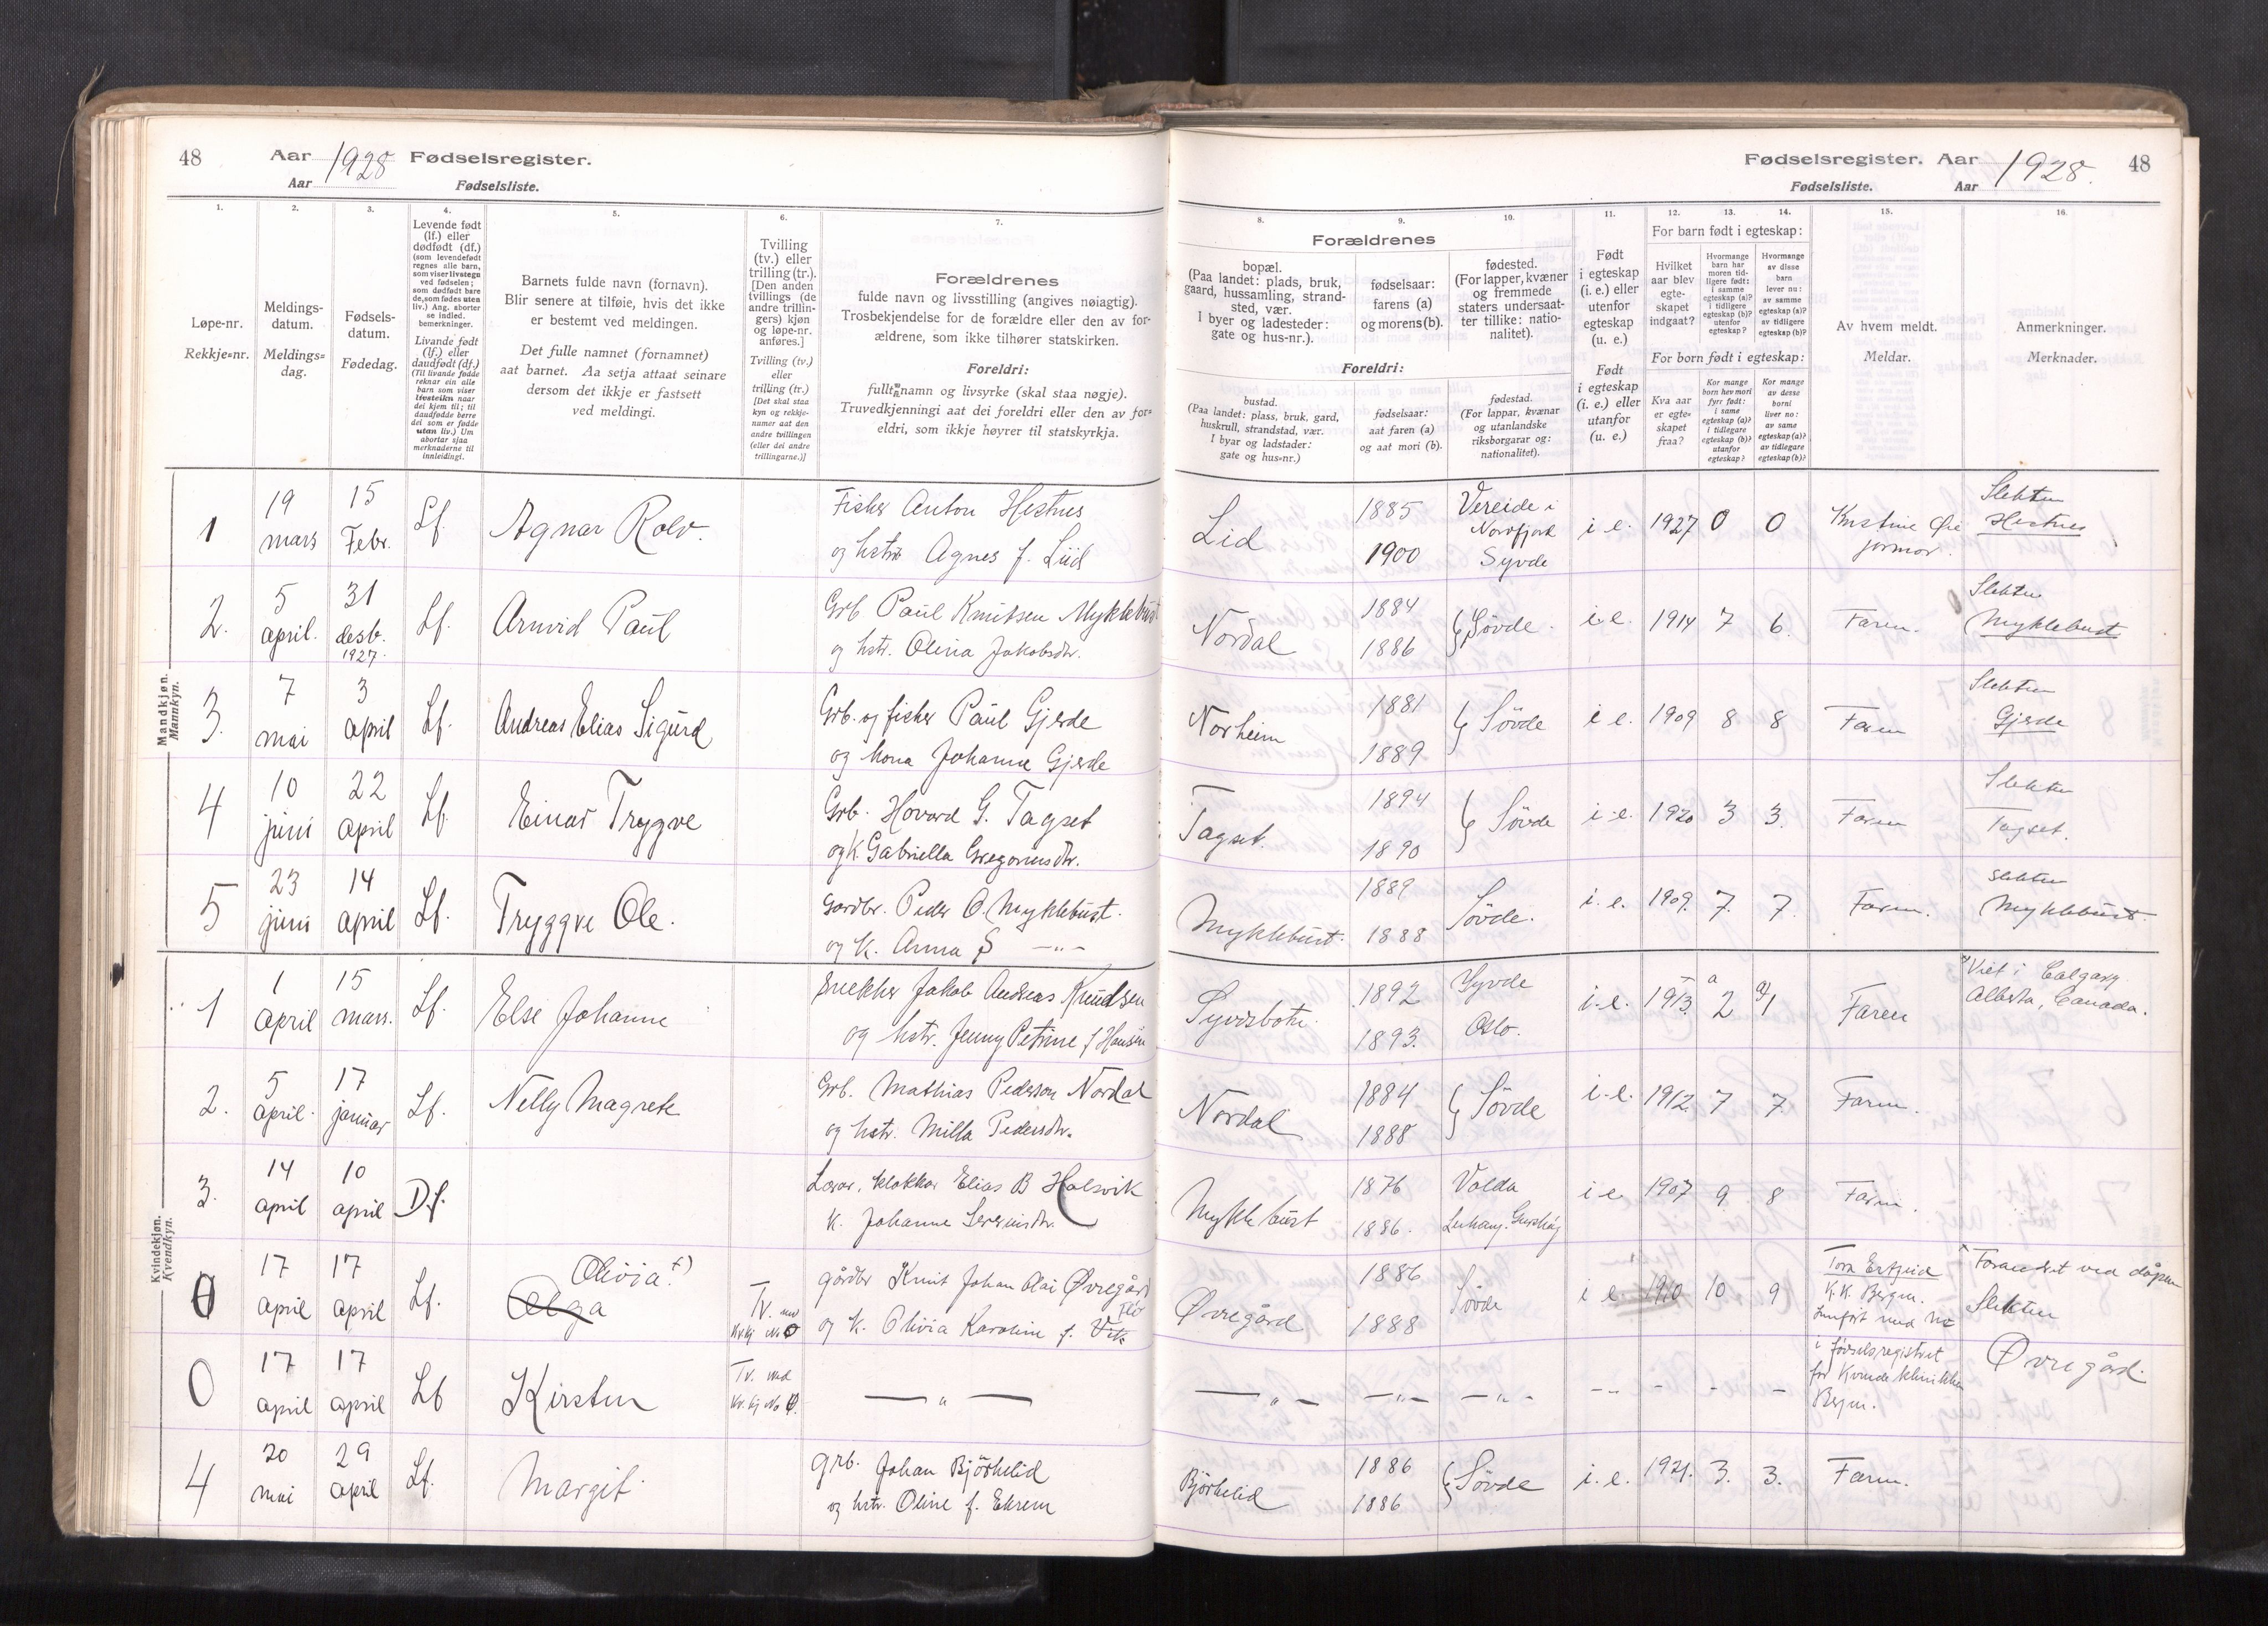 48 Aar 1928 Fødselsregister.
Aar Fødselsliste.
Fødselsregister. Aar 1928. 48
Fødselsliste. Aar
1.
Løpe-nr.
Rekkje-nr.
2.
Meldings-
datum.
Meldings-
dag.
3.
Fødsels-
datum.
Fødedag.
4.
Levende født
(lf.) eller
dødfødt (df.)
(som levendefødt
regnes alle barn,
som viser livstegn
ved fødselen;
som dødfødt bare
de, som fødes uten
liv.) Ang. aborter
se indled.
bemerkninger.
Livande født
(lf.) eller
daudfødt (df.)
(Til livande fødde
reknar ein alle
barn som viser
livsteikn naar
dei kjem til; til
daudfødde berre
dei som er fødde
utan liv.) Um
abortar sjaa
merknaderne til
innleidingi.
5.
Barnets fulde navn (fornavn).
Blir senere at tilføie, hvis det ikke
er bestemt ved meldingen.
Det fulle namnet (fornamnet)
aat barnet. Aa setja attaat seinare
dersom det ikkje er fastsett
ved meldingi.
6.
Tvilling
(tv.) eller
trilling (tr.).
[Den anden
tvillings (de
andre trillin-
gers) kjøn
og løpe-nr.
anføres.]
Tvilling (tv.)
eller
trilling (tr.)
[Det skal staa
kyn og rekkje-
numer aat den
andre tvillingen
(eller dei andre
trillingarne.)]
7.
Forældrenes
fulde navn og livsstilling (angives nøiagtig).
Trosbekjendelse for de forældre eller den av for-
ældrene, som ikke tilhører statskirken.
Foreldri:
fullt namn og livsyrke (skal staa nøgje).
Truvedkjenningi aat dei foreldri eller den av for-
eldri, som ikkje høyrer til statskyrkja.
Forældrenes
8.
bopæl.
(Paa landet: plads, bruk,
gaard, hussamling, strand-
sted, vær.
I byer og ladesteder:
gate og hus-nr.).
9.
fødselsaar:
farens (a)
og morens (b).
10.
fødested.
(For lapper, kvæner
og fremmede
staters undersaat-
ter tillike: natio-
nalitet).
Foreldri:
bustad.
(Paa landet: plass, bruk, gard,
huskrull, strandstad, vær.
I byar og ladstader:
gate og hus-nr.)
fødselsaar:
aat faren (a)
og aat mori (b).
fødestad.
(For lappar, kvænar
og utanlandske
riksborgarar og:
nationalitet).
11.
Født
i egteskap
(i. e.) eller
utenfor
egteskap
(u. e.)
Født
i egteskap
(i. e.) eller
utanfor
(u. e.)
12. 13. 14.
For barn født i egteskap:
Hvilket
aar blev
egte-
skapet
indgaat?
Hvormange
barn har
moren tid-
ligere født:
i samme
egteskap (a)?
i tidligere
egteskap (b)?
utenfor
egteskap?
Hvormange
av disse
barn
lever nu:
av samme
egteskap (a)?
av tidligere
egteskap (b)?
For born født i egteskap:
Kva aar
er egte-
skapet
fraa?
Kor mange
born hev mori
fyrr født:
i same
egteskap (a)?
i tidlegare
egteskap (b)?
utanfor
egteskap?
Kor mange
av desse
borni
liver no:
av same
egteskap (a)?
av tidlegare
egteskap (b)?
15.
Av hvem meldt.
Meldar.
16.
Anmerkninger.
Merknader.
Mandkjøn.
Mannkyn.
1 19 mars 15 Febr. Lf. Agnar Rolv. Fisker Anton Hestnes
og hstr Agnes f. Liid
Lid 1885 1900 Vereide i Nordfjord Syvde i e. 1927 0 0 Kristine jormor. Slekten Hestnes
2. 5 april. 31 desb. 1927. Lf. Arnvid Paul Grb Paul Knutsen Myklebust
og hstr. Olina Jakobsdtr.
Nordal 1884 1886 Søvde. i e. 1914 7 6. Faren. Slekten Myklebust
3. 7 mai 3 april Lf. Andreas Elias Sigurd Grb. og fisker Paul Gjerde
og kona Johanne Gjerde
Norheim 1881 1889 Søvde i e. 1909 8 8 Faren Slekten Gjerde
4 10 juni 22 april Lf. Einar Tryggve Grb. Hovard G. Tagset
og K. Gabriella Gregoriusdtr.
Tagset. 1894 1890 Søvde i e. 1920 3 3. Faren Slekten Tagset.
5 23 juni 14 april Lf. Tryggve Ole. Gardbr. Peder O. Myklebust.
og K. Anna S —"—
Myklebust. 1889 1888 Søvde. i. e. 1909. 7. 7. Faren. Slekten Myklebust.
Kvindekjøn.
Kvendkyn.
1 1 april 15 mars. Lf. Else Johanne Snekker Jakob Andreas Knudsen
og hstr. Jenny Petrine f Hansen
Syvdsbotn 1892 1893. Syvde Oslo. i. e. 1913. a 2 a) 1 Faren Viet i Calgary
Alberta, Canada.
2. 5 april. 17 januar Lf. Nelly Magrete Grb. Mathias Pederson Nordal
og hstr. Milla Pedersdtr.
Nordal 1884 1888 Søvde i. e. 1912. 7 7 Faren.
3. 14 april 10 april D.f. Lærar, klokkar Elias B Halsvik
K. Johanne Severinsdtr.
Myklebust 1876 1886. Volda i e. 1907 9. 8 Faren.
0 17 april 17 april Lf. Olga Olivia +) Tv. med Kv.kj No 0 gårdbr Knut Johan Olai Øvregård
og K. Olivia Karoline f. Vik
Øvregård 1886 1888 Søvde i e 1910 10 9 K.K. Bergen. Forandret ved dåpen
Slekten
Øvregård.
0 17 april 17 april Lf Kirsten Tv. med Kv. kj No 0. — " —
— " — — " — — " — i fødselsregistret
for Kvindeklinikken
Bergen.
4 20 mai 29 april Lf. Margit grb. Johan Bjørkelid
og hstr. Oline f. Ekrem
Bjørkelid 1886 1886 Søvde i. e. 1921. 3. 3. Faren.